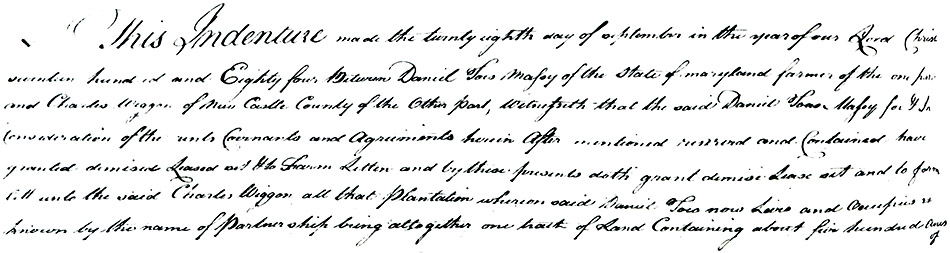 This Indenture made the twenty eighth day of september in the year of our Lord Christ
seventeen hundred and Eighty four Between Daniel Toas Massy of the State of maryland farmer of the one part
and Charles Wiggon of New Castle County of the Other Part, Witnesseth that the said Daniel Toas Massy for & In
Consideration of the rents Covenants and Agreements herein After mentioned reserved and Contained have
granted demised Leased set & to Farm Letten and by these presents doth grant demise Lease set and to farm
Lett unto the said Charles Wiggon all that Plantation whereon said Daniel Toas now Lives and Occupies is
known by the name of Partnership being altogether one tract of Land Containing about five hundred Acres
of